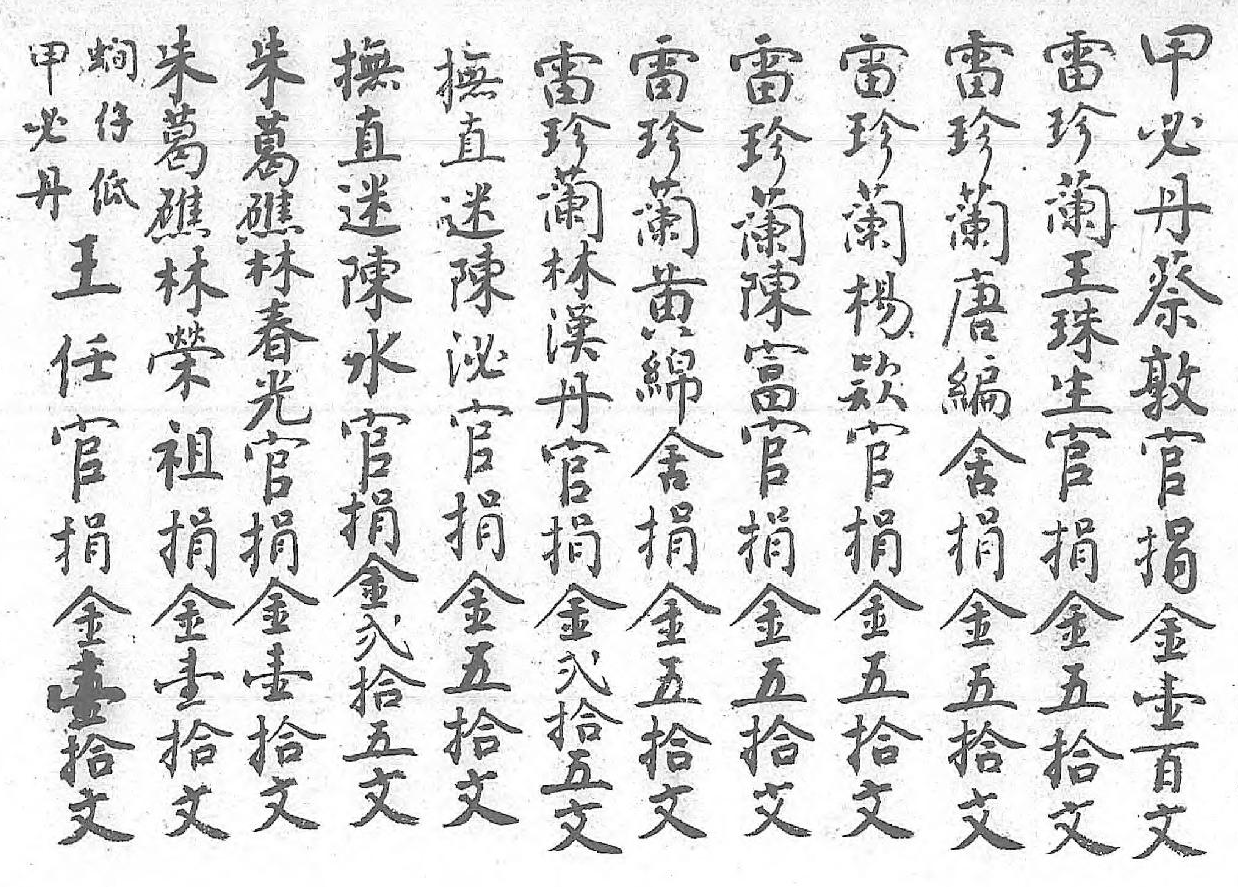 甲必丹蔡敦官捐金壹百文
雷珍蘭王珠生官捐金五拾文
雷珍蘭唐編舍捐金五拾文
雷珍蘭楊款官捐金五拾文
雷珍蘭陳富官捐金五拾文
雷珍蘭黃綿舍捐金五拾文
雷珍蘭林漢丹官捐金弍拾五文
撫直迷陳泌官捐金五拾文
撫直迷陳水官捐金弍拾五文
朱葛礁林春光官捐金壹拾文
朱葛礁林榮祖捐金壹拾文
蝴仔低甲必丹王任官捐金壹拾文